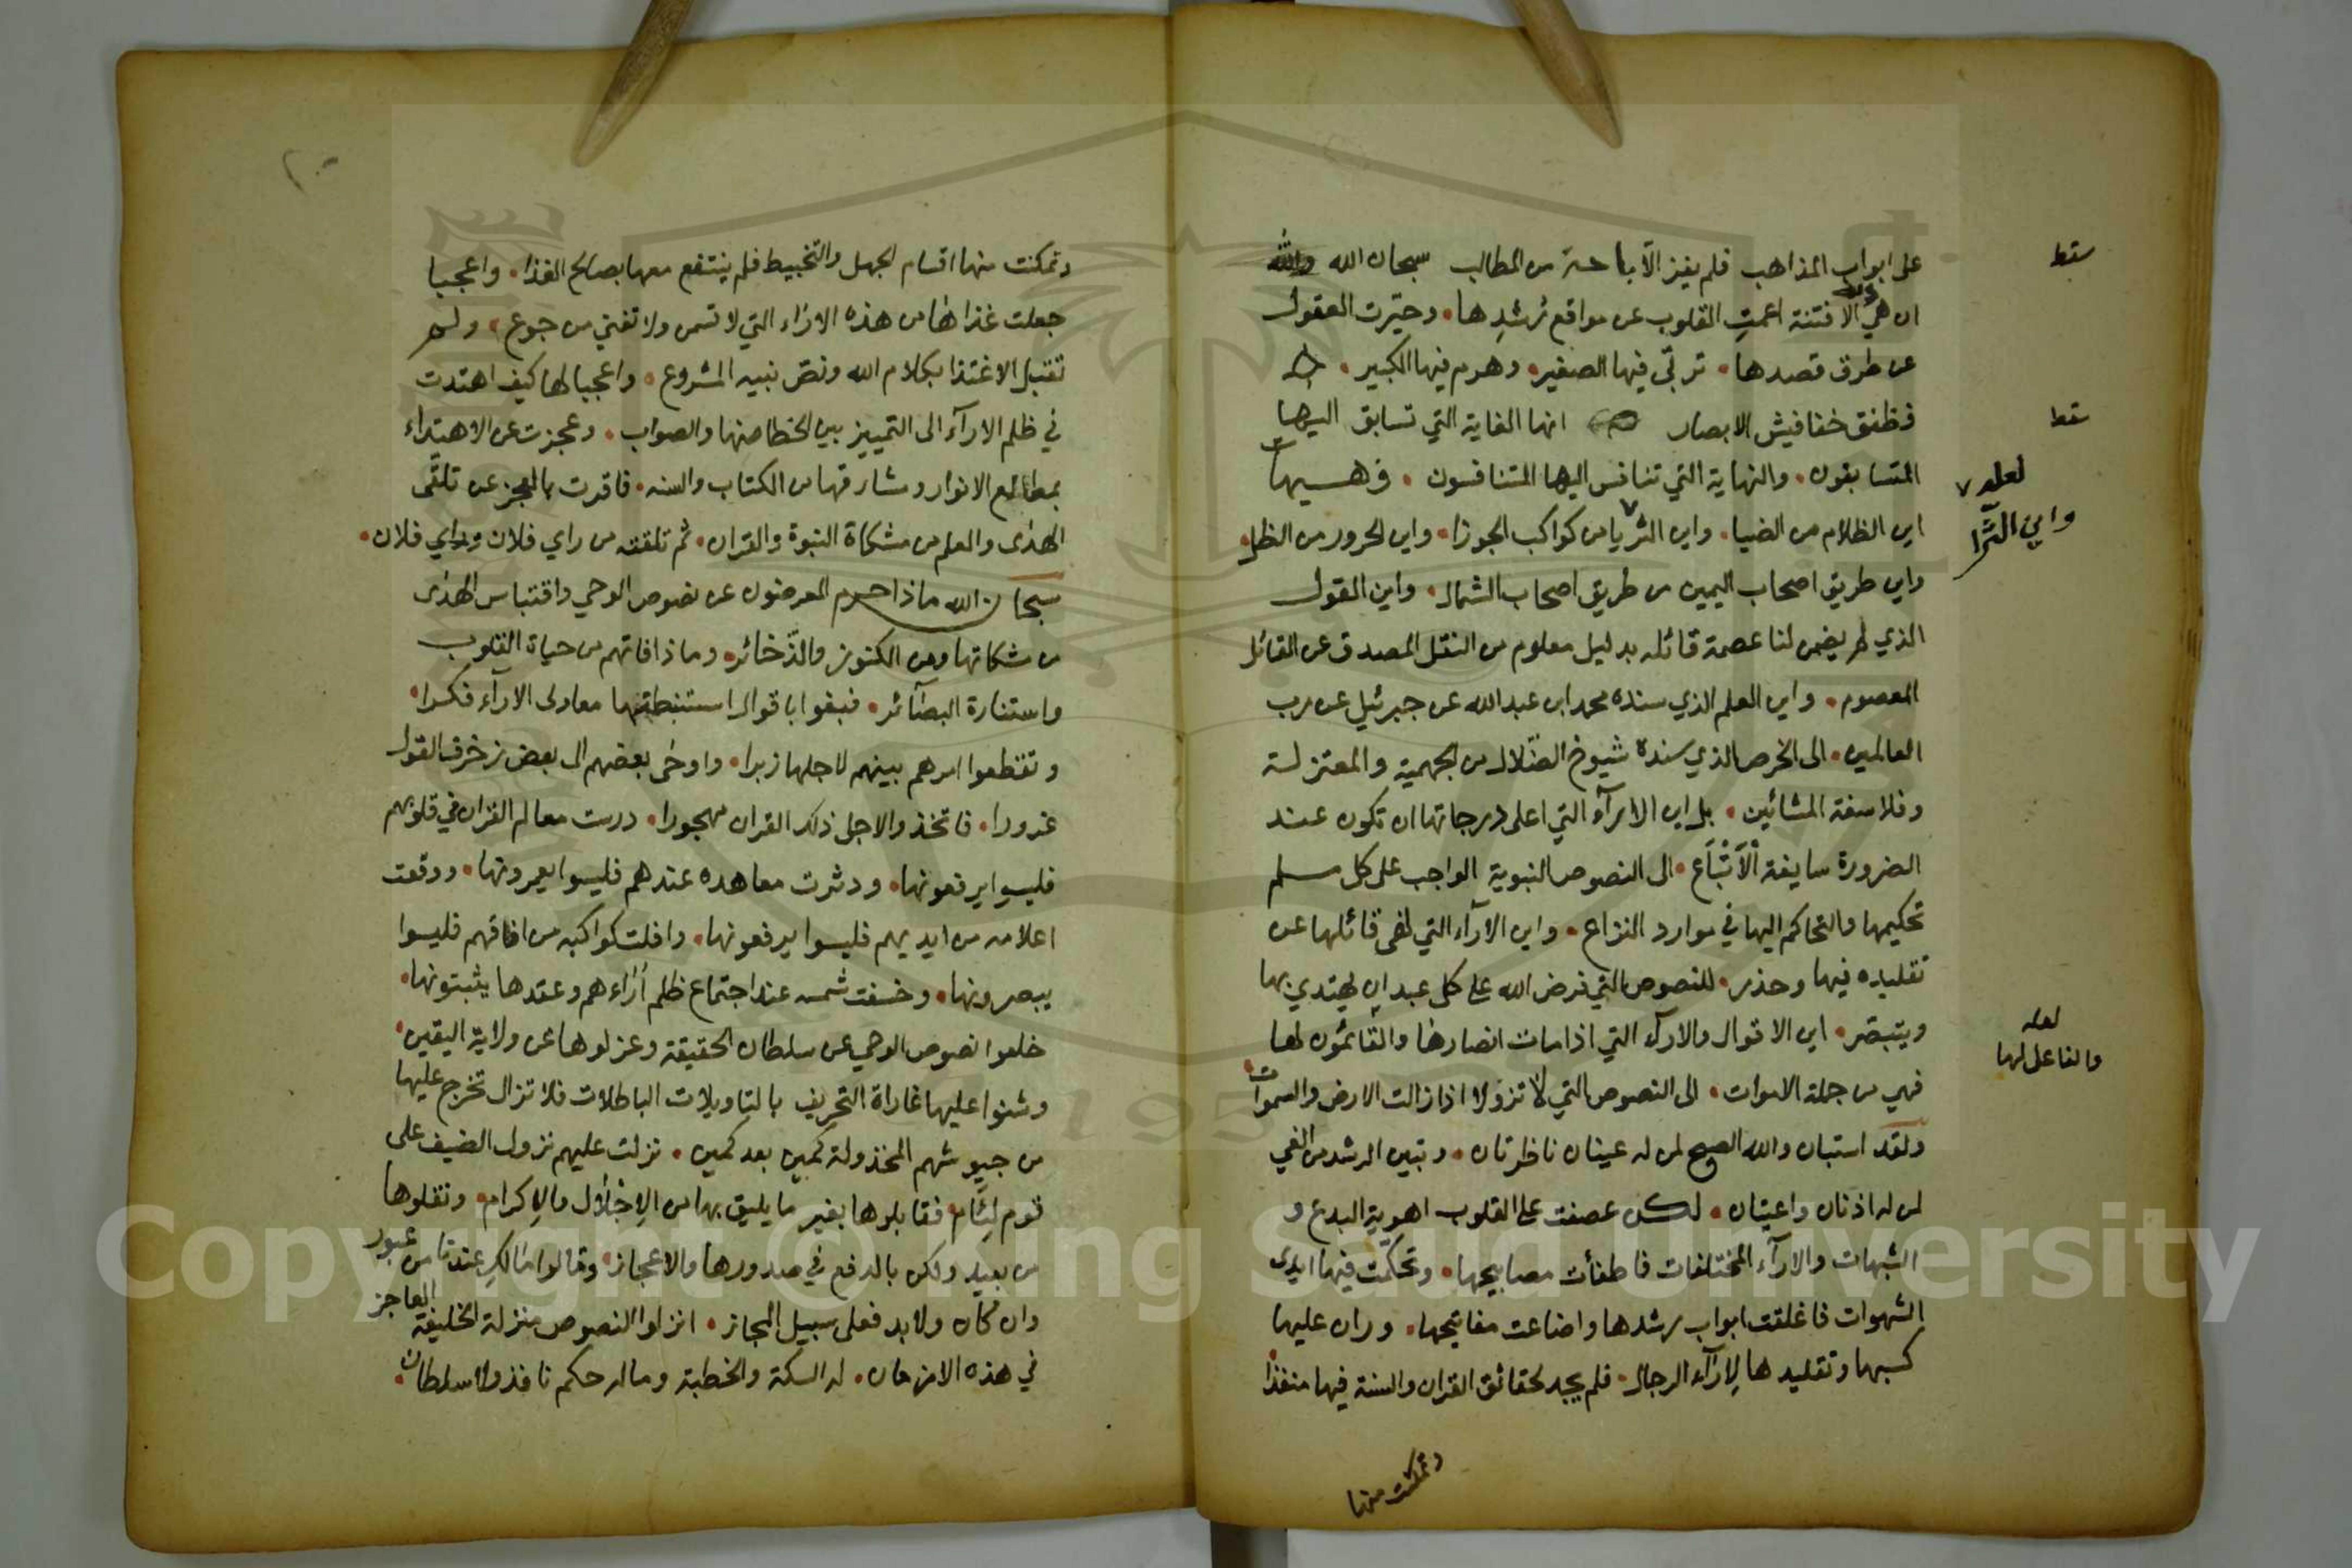 على ابواب المذاهب فلم يفز الا باخسة من المطالب سبحان الله والله
ان هي الا فتنة اعمت القلوب عن مواقع رُشدِها وحيّرت العقول
عن طرق قصدها تربّى فيها الصغير وهرم فيها الكبير
فظنق خفافيش الابصار انها الغاية التي تسابق اليها
المتسابقون والنهاية التي تنافس اليها المتنافسون فهيهات
اين الظلام من الضيا واين الثريا من كواكب الجوزا واين الحرور من الظل
واين طريق اصحاب اليمين من طريق اصحاب الشمال واين القول
الذي لم يضمن لنا عصمة قائله بدليل معلوم من النقل المصدق عن القائل
المعصوم واين العلم الذي سنده محمد ابن عبد الله عن جبرئيل عن رب
العالمين الى الخرص الذي سنده شيوخ الضّلال من الجهمية والمعتزلة
وفلاسفة المشائين بل اين الاراء التي اعلى درجاتها ان تكون عند
الضرورة سايغة الاتباع الى النصوص النبوية الواجب على كل مسلم
تحكيمها والتحاكم اليها في موارد النزاع واين الاراء التي نهى قائلها عن
تقليده فيها وحذر للنصوص التي فرض الله على كل عبد ان يهتدي بها
ويتبصّر اين الاقوال والاراء التي اذا مات انصارها والقائمون لها
فهي من جملة الاموات الى النصوص التي لا تزولا اذا زالت الارض والسموات
ولقد استبان والله الصبح لمن له عينان ناظرتان وتبين الرشد من الغي
لمن له اذنان واعيتان لكن عصفت على القلوب اهوية البدع و
الشبهات والاراء المختلفات فاطفأت مصابيحها وتحكّمت فيها ايدى
الشهوات فاغلقت ابواب رشدها واضاعت مفاتيحها وران عليها
كسبها وتقليدها لاراء الرجال فلم يجد لحقائق القران والسنة فيها منفذا
وتمكنت منها
سقط
سقط
لعله
واين الثَّرا
لعله
والفاعل لها
وتمكنت منها اقسام الجهل والتخبيط فلم ينتفع معها بصالح الغذا واعجبا
جعلت غذاها من هذه الاراء التي لا تسمن ولا تغني من جوع ولم
تقبل الاغتذا بكلام الله ونصّ نبيه المشروع واعجبا لها كيف اهتدت
في ظلم الاراء الى التمييز بين الخطا منها والصواب وعجزت عن الاهتداء
بمطالع الانوار ومشارقها من الكتاب والسنه فاقرت بالعجز عن تلقّى
الهدى والعلم من مشكاة النبوة والقران ثم تلقته من راي فلان وراي فلان
سبحان الله ماذا حرم المعرضون عن نصوص الوحي واقتباس الهدى
من مشكاتها من الكنوز والذّخائر وماذا فاتهم من حياة القلوب
واستنارة البصائر فبغوا باقوال استنبطتها معاول الاراء فكرا
وتقطعوا امرهم بينهم لاجلها زبرا واوحى بعضهم الى بعض زخرف القول
غرورا فاتخذوا لاجل ذلك القران مهجورا درست معالم القران في قلوبهم
فليسوا يرفعونها ودثرت معاهده عندهم فليسوا يعمرونها ووقعت
اعلامه من ايديهم فليسوا يرفعونها وافلت كواكبه من افاقهم فليسوا
يبصرونها وخسفت شمسه عند اجتماع ظلم أراءهم وعقدها يثبتونها
خلعوا نصوص الوحي عن سلطان الحقيقة وعزلوها عن ولاية اليقين
وشنوا عليها غاراة التحريف بالتاويلات الباطلات فلا تزال تخرج عليها
من جيوشهم المخذولة كمين بعد كمين نزلت عليهم نزول الضيف على
قوم لئام فقابلوها بغير ما يليق بها من الاجلال والاكرام ونقلوها
من بعيد ولكن بالدفع في صدورها والاعجاز وقالوا مالك عندنا من عبور
وان كان ولا بد فعلى سبيل المجاز انزلوا النصوص منزلة الخليفة العاجز
في هذه الازمان له السكة والخطبة وماله حكم نافذ ولا سلطان
Copyright © King Saud University
195